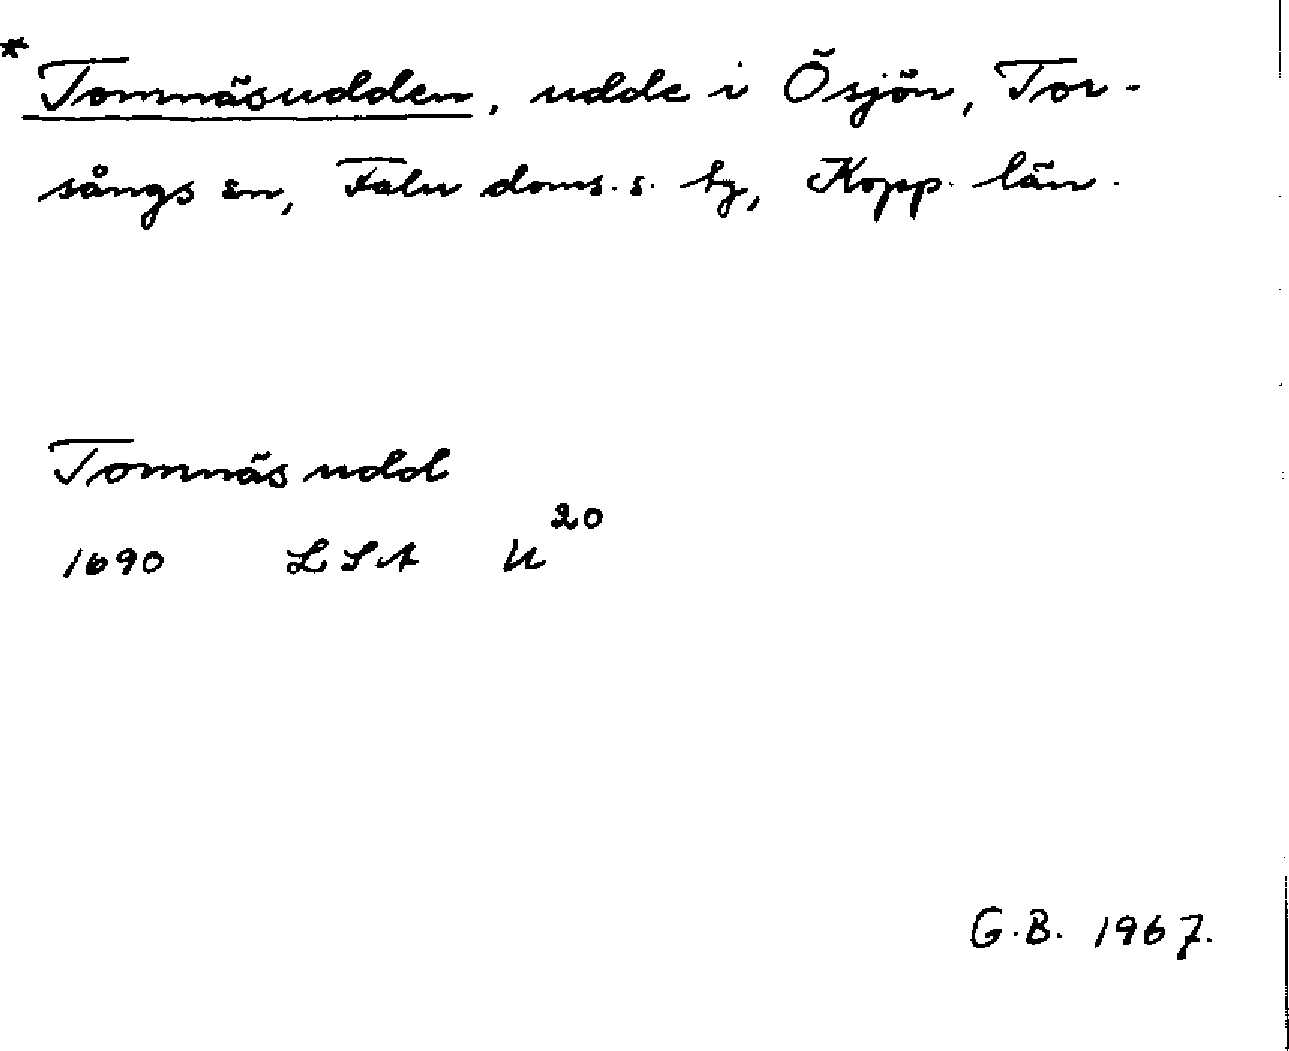 * Tomnäsudden, udde i Ösjön, Tor-
sångs sn, Falu doms. s. tg, Kopp. län.
Tomnäs udd
1690 LSA U²⁰
G.B. 1967.